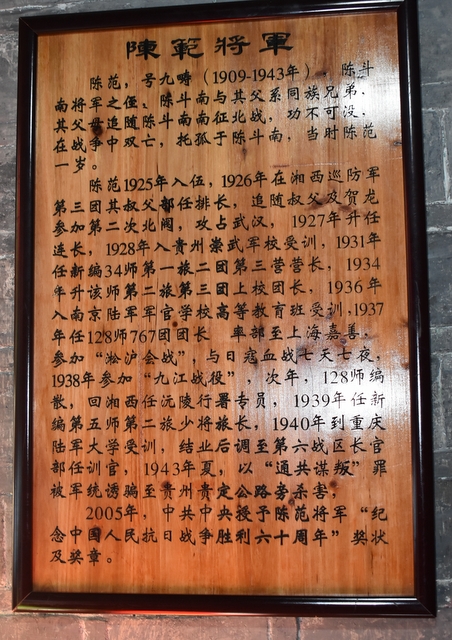 陳範將軍
陈范，号九畴（1909-1943年），陈斗
南将军之侄、陈斗南与其父系同族兄弟，
其父曾追随陈斗南南征北战，功不可没，
在战争中双亡，托孤于陈斗南，当时陈范
一岁。
陈范1925年入伍，1926年在湘西巡防军
第三团其叔父部任排长，追随叔父及贺龙
参加第二次北阀，攻占武汉，1927年升任
连长，1928年入贵州崇武军校受训，1931年
任新编34师第一旅二团第三营营长，1934
年升该师第二旅第三团上校团长，1936年
入南京陆军军官学校高等教育班受训，1937
年任128师767团团长 率部至上海嘉善，
参加“淞沪会战”，与日寇血战七天七夜，
1938年参加“九江战役”，次年，128师编
散，回湘西任沅陵行署专员，1939年任新
编第五师第二旅少将旅长，1940年到重庆
陆军大学受训，结业后调至第六战区长官
部任训官，1943年夏，以“通共谋叛”罪
被军统诱骗至贵州贵定公路旁杀害，
2005年，中共中央授予陈范将军“纪
念中国人民抗日战争胜利六十周年”奖状
及奖章。